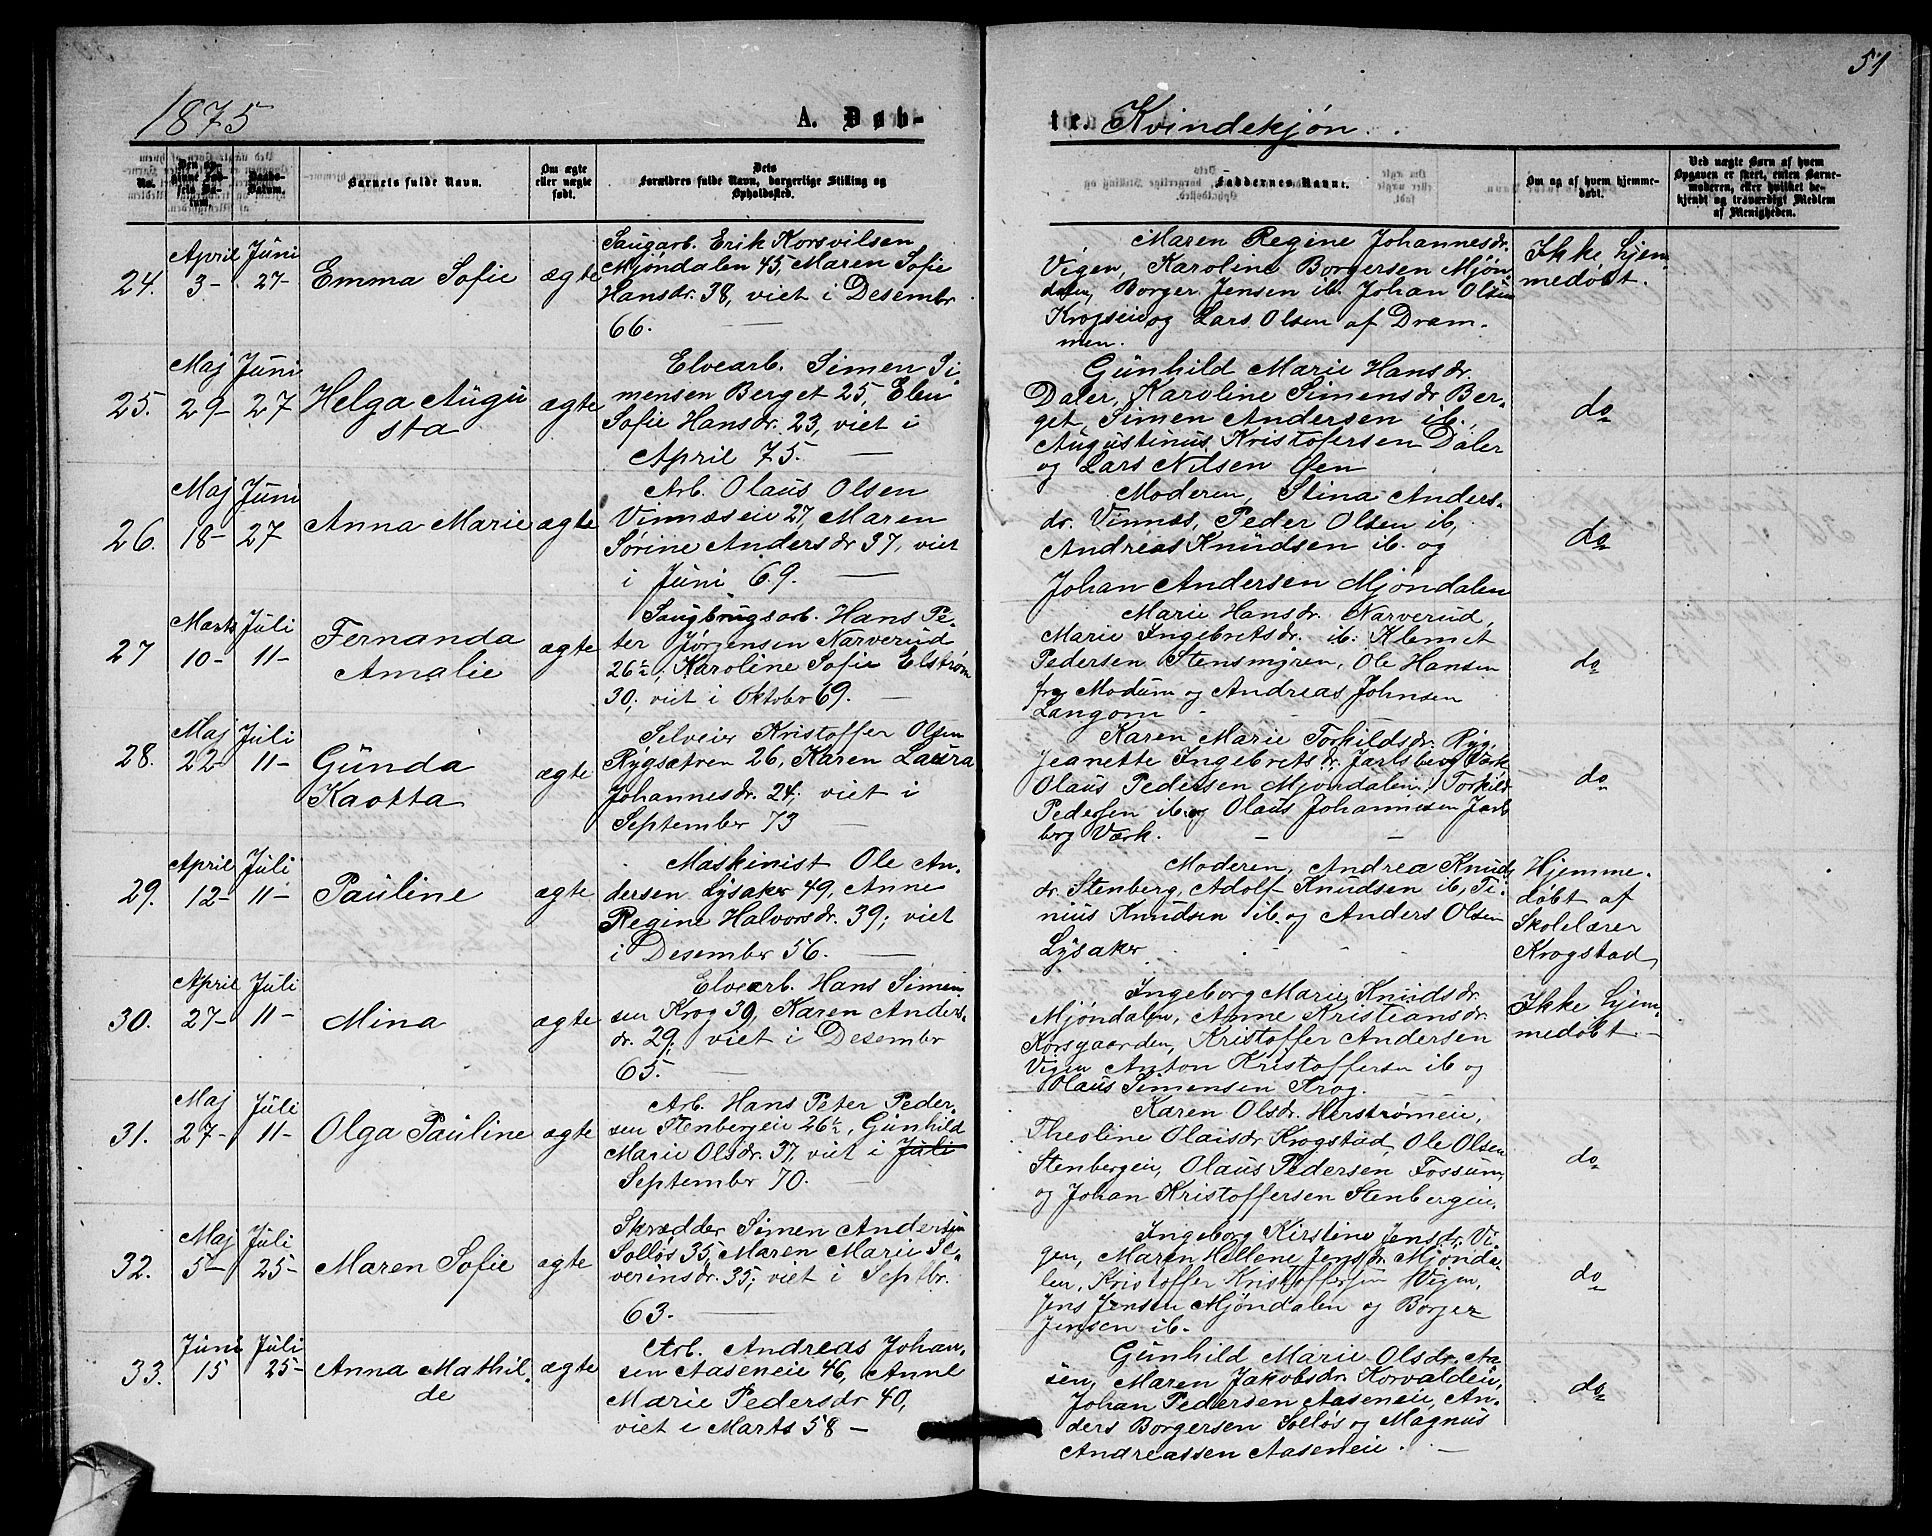 51
1875
A. Døb-
te. Kvindekjøn.
No.
Den op-
givne Fød-
sels Da-
tum.
Daabs-
Datum.
Barnets fulde Navn.
Om ægte
eller uægte
født.
Dets
Forældres fulde Navn, borgerlige Stilling og
Opholdssted.
Faddernes Navne.
Om og af hvem hjemme-
døbt.
Ved uægte Børn af hvem
Opgaven er skeet, enten Barne-
moderen, eller hvilket be-
kjendt og troværdigt Medlem
af Menigheden.
24.
April
3-
Juni
27-
Emma Sofie
ægte
Saugarb. Erik Korsvilsen
Mjøndalen 45, Maren Sofie
Hansdr. 38, viet i Desembr
66.
Maren Regine Johannesdr.
Vigen, Karoline Borgersen Mjøn
dalen, Borger Jensen ib. Johan Olsen
Krogseie og Lars Olsen af Dram-
men.
Ikke hjem-
medøbt.
25.
Maj
29-
Juni
27
Helga Augu
sta
ægte
Elvearb. Simen Si-
mensen Berget 25, Elen
Sofie Hansdr. 23, viet i
April 75.
Gunhild Marie Hansdr.
Daler, Karoline Simensdr Ber-
get, Simen Andersen ib.,
Augustinus Kristofersen Daler
og Lars Nilsen Øen
do
26.
Maj
18-
Juni
27
Anna Marie
ægte
Arb. Olaus Olsen
Vinnæseie 27, Maren
Sørine Andersdr 37, viet
i Juni 69.
Moderen, Stina Anders-
dr. Vinnæs, Peder Olsen ib,
Andreas Knudsen ib. og
Johan Andersen Mjøndalen
do
27
Marts
10-
Juli
11-
Fernanda
Amalie
ægte
Saugbrugsarb. Hans Pe-
ter Jørgensen Narverud
26½, Karoline Sofie Elstrøm
30, viet i Oktobr 69.
Marie Hansdr. Narverud,
Marie Ingebretsdr. ib. Klemet
Pedersen Stensmyren, Ole Hansen
fra Modum og Andreas Johnsen
Langom
do
28.
Maj
22-
Juli
11-
Gunda
Kaotta
ægte
Selveier Kristoffer Olsen
Rygsætren 26, Karen Laura
Johannesdr. 24; viet i
September 73
Karen Marie Torkildsdr. Ryg,
Jeanette Ingebretsdr. Jarlsberg Værk
Olaus Pedersen Mjøndalen, Torkild
Pedersen ib. og Olaus Johannesen Jarls
berg Værk.
do
29.
April
12-
Juli
11-
Pauline
ægte
Maskinist Ole An-
dersen Lysaker 49, Anne
Regine Halvorsdr. 39; viet
i Desember 56.
Moderen, Andrea Knuds
dr. Stenberg, Adolf Knudsen ib, Ti-
nius Knudsen ib. og Anders Olsen
Lysaker
Hjemme-
døbt af
Skolelærer
Krogstad
30.
April
27-
Juli
11-
Mina
ægte
Elvearb. Hans Simen-
sen Krog 39, Karen Anders-
dr. 29, viet i Desembr
65.
Ingeborg Marie Knudsdr.
Mjøndalen, Anne Kristiansdr
Korsgaarden, Kristoffer Andersen
Vigen Anton Kristoffersen ib og
Olaus Simensen Krog.
Ikke hjem-
medøbt -
31.
Maj
27-
Juli
11-
Olga Pauline
ægte
Arb. Hans Peter Peder-
sen Stenbergeie 26½, Gunhild
Marie Olsdr. 37, viet i Juli
September 70.
Karen Olsdr. Herstrømeie,
Theoline Olaisdr Krogstad, Ole Olsen
Stenbergeie, Olaus Pedersen Fossum,
og Johan Kristoffersen Stenbergeie.
do
32.
Maj
5-
Juli
25-
Maren Sofie
ægte
Skrædder Simen Andersen
Solløs 35, Maren Marie Se-
verinsdr. 35; viet i Septbr.
63.
Ingeborg Kirstine Jensdr. Vi-
gen, Maren Hellene Jensdr. Mjønda-
len, Kristoffer Kristoffersen Vigen,
Jens Jensen Mjøndalen og Borger
Jensen ib.
do
33.
Juni
15
Juli
25-
Anna Mathil-
de
ægte
Arb. Andreas Johan-
sen Aaseneie 46, Anne
Marie Pedersdr 40,
viet i Marts 58 -
Gunhild Marie Olsdr. Aa-
sen, Maren Jakobsdr. Korvaldeie,
Johan Pedersen Aaseneie, An-
ders Borgersen Solløs og Magnus
Andreassen Aaseneie.
do